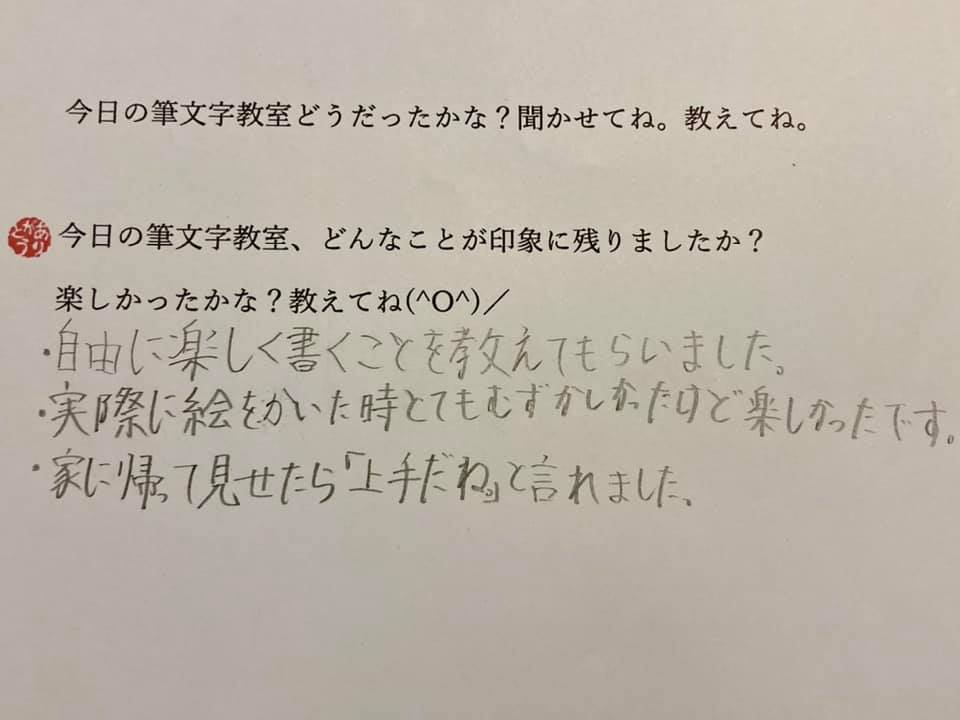 今日の筆文字教室どうだったかな？聞かせてね。教えてね。
ありがとう
今日の筆文字教室、どんなことが印象に残りましたか？
楽しかったかな？教えてね(^O^)／
・自由に楽しく書くことを教えてもらいました。
・実際に絵をかいた時とてもむずかしかったけど楽しかったです。
・家に帰って見せたら「上手だね。」と言れました。